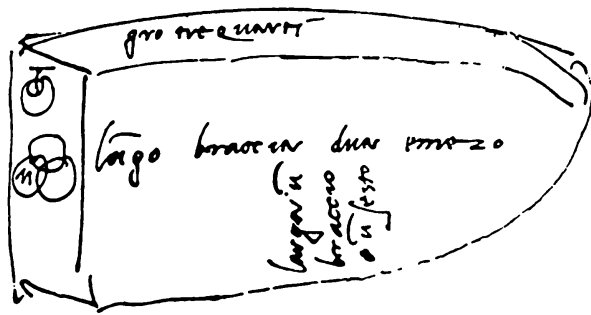 gro tre quarti
lūgo braccia dua emezo
largo ū
braccio
e ū sesto